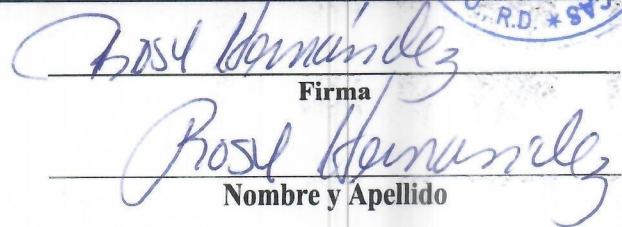 ., R.D. * SA
Rosy Hernández
Firma
Rosy Hernandez
Nombre y Apellido